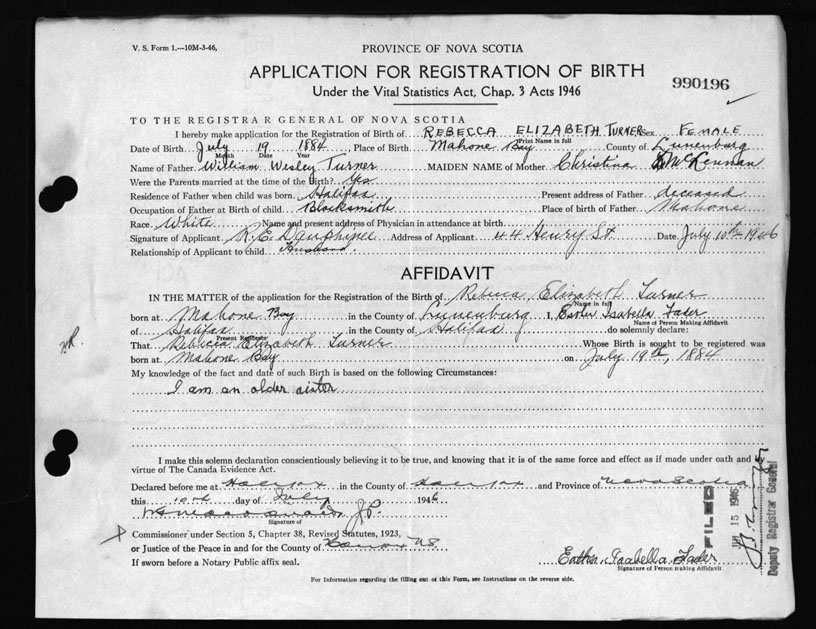 V. S. Form 1.---10M-3-46,
PROVINCE OF NOVA SCOTIA
APPLICATION FOR REGISTRATION OF BIRTH
990196
Under the Vital Statistics Act, Chap. 3 Acts 1946
TO THE REGISTRAR GENERAL OF NOVA SCOTIA
I hereby make application for the Registration of Birth of REBECCA ELIZABETH TURNER Sex FEMALE
Print Name in full
Date of Birth July 19 1884, Place of Birth Mahone Bay County of Lunenburg
Month Date Year
Name of Father William Wesley Turner MAIDEN NAME of Mother Christina McLennan
Were the Parents married at the time of the Birth? Yes
Residence of Father when child was born Halifax Present address of Father deceased
Occupation of Father at Birth of child Blacksmith Place of birth of Father Mahone
Race White Name and present address of Physician in attendance at birth
Signature of Applicant R. E. Dauphinee Address of Applicant 44 Henry St Date July 10th 1946
Relationship of Applicant to child Husband.
AFFIDAVIT
IN THE MATTER of the application for the Registration of the Birth of Rebecca Elizabeth Turner
Name in full
born at Mahone Bay in the County of Lunenburg I, Esther Isabella Fader
Name of Person Making Affidavit
of Halifax in the County of Halifax do solemnly declare:
Present Residence
That Rebecca Elizabeth Turner Whose Birth is sought to be registered was
born at Mahone Bay on July 19th, 1884
My knowledge of the fact and date of such Birth is based on the following Circumstances:
I am an older sister
I make this solemn declaration conscientiously believing it to be true, and knowing that it is of the same force and effect as if made under oath and by
virtue of The Canada Evidence Act.
Declared before me at Halifax in the County of Halifax and Province of Nova Scotia
this 10th day of July 1946
J.P.
Signature of
Commissioner under Section 5, Chapter 38, Revised Statutes, 1923,
or Justice of the Peace in and for the County of Halifax NS
If sworn before a Notary Public affix seal.
Esther Isabella Fader
Signature of Person making Affidavit
For Information regarding the filling out of this Form, see Instructions on the reverse side.
FILED
15 1946
Deputy Registrar General